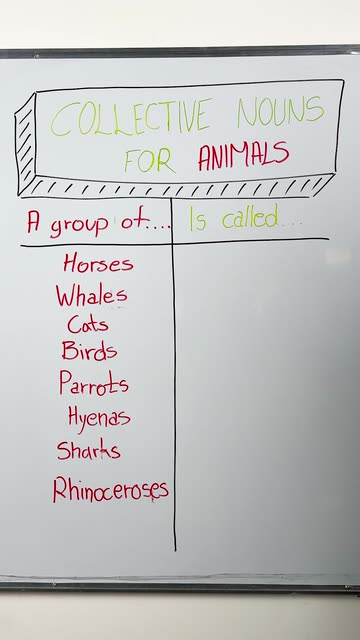 COLLECTIVE NOUNS
FOR ANIMALS
A group of.... Is called...
Horses
Whales
Cats
Birds
Parrots
Hyenas
Sharks
Rhinoceroses